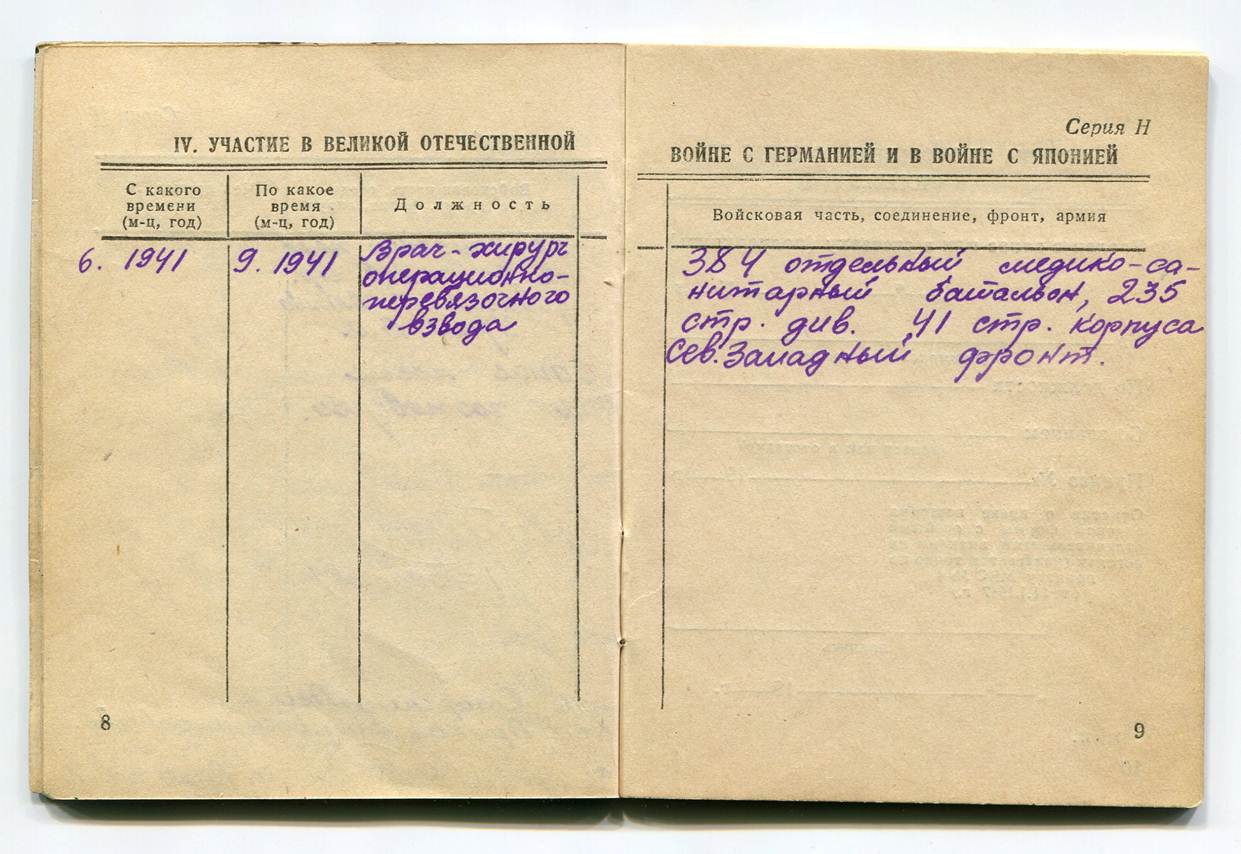 IV. УЧАСТИЕ В ВЕЛИКОЙ ОТЕЧЕСТВЕННОЙ
С какого
времени
(м-ц, год)
По какое
время
(м-ц, год)
Должность
6. 1941
9. 1941
Врач-хирург
операционно-
перевязочного
взвода
8
Серия Н
ВОЙНЕ С ГЕРМАНИЕЙ И В ВОЙНЕ С ЯПОНИЕЙ
Войсковая часть, соединение, фронт, армия
384 отдельный медико-са-
нитарный батальон, 235
стр. див. 41 стр. корпуса
Сев. Западный фронт.
9